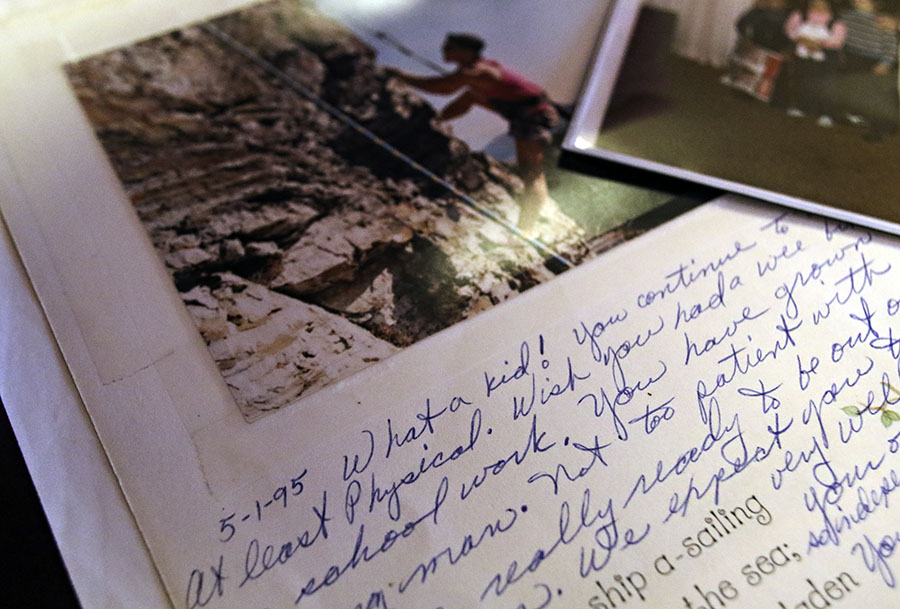 5-1-95 What a kid! You continue to
at least Physical. Wish you had a wee
school work. You have grown
man. Not too patient with
really ready to be out
We expect you
very well
ship a-sailing your
the sea;